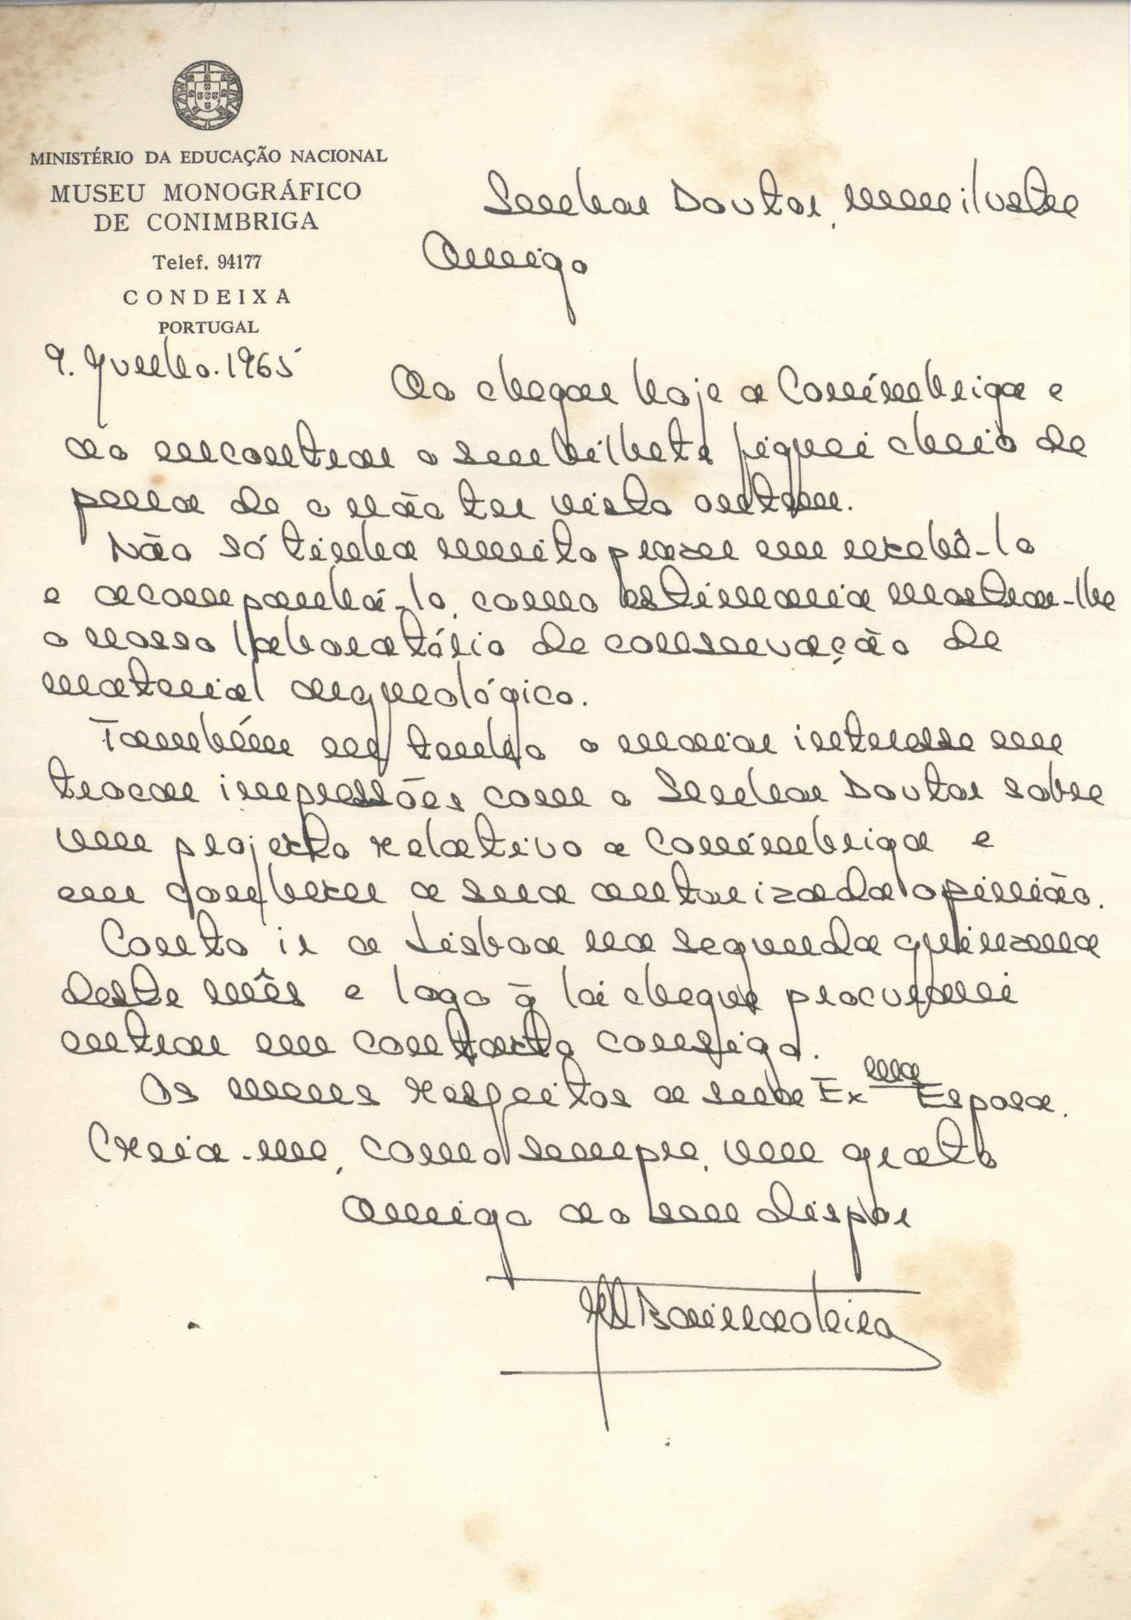 MINISTÉRIO DA EDUCAÇÃO NACIONAL
MUSEU MONOGRÁFICO
DE CONIMBRIGA
Telef. 94177
CONDEIXA
PORTUGAL
9. Junho. 1965
Senhor Doutor, meu ilustre
Amigo
Ao chegar hoje a Conímbriga e
ao encontrar o seu bilhete fiquei cheio de
pena de o não ter visto ontem.
Não só tinha muito prazer em recebê-lo
e acompanhá-lo, como estimaria mostrar-lhe
o nosso laboratório de conservação de
material arqueológico.
Também eu tenho o maior interesse em
trocar impressões com o Senhor Doutor sobre
um projecto relativo a Conímbriga e
em conhecer a sua autorizada opinião.
Conto ir a Lisboa na segunda quinzena
deste mês e logo q̃ lá chegue procurarei
entrar em contacto consigo.
Os meus respeitos a sua Exma Esposa.
Creia-me, como sempre, um grato
amigo ao seu dispor
JM Bairrão Oleiro